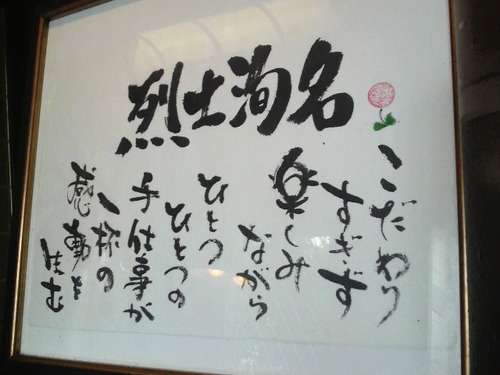 烈士洵名
こだわり
すぎず
楽しみ
ながら
ひとつ
ひとつの
手仕事が
一杯の
感動を生む